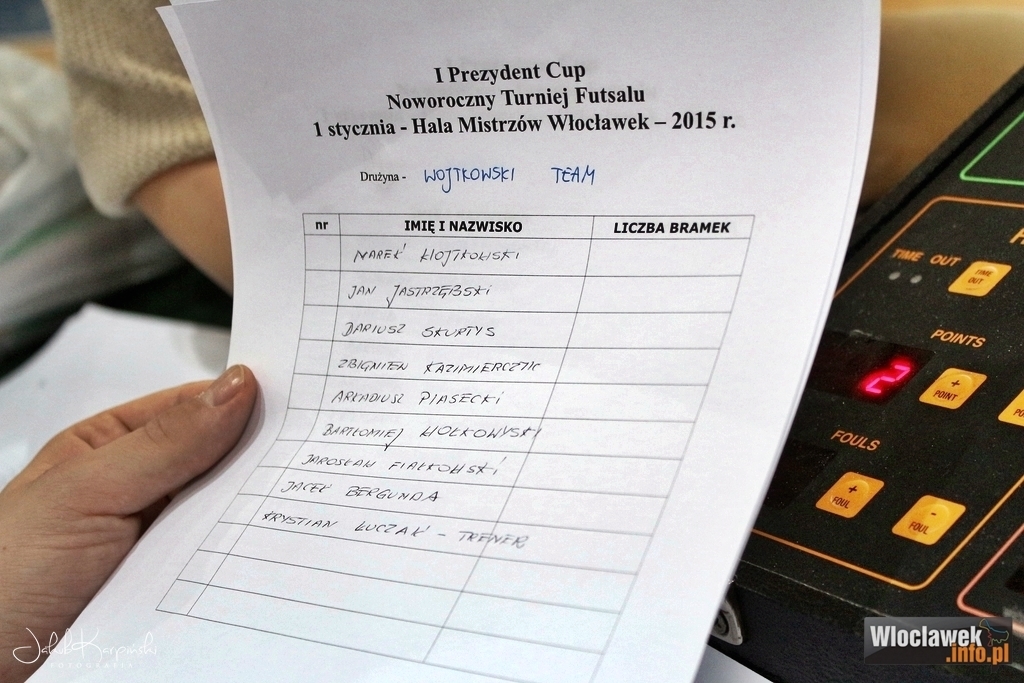 I Prezydent Cup
Noworoczny Turniej Futsalu
1 stycznia - Hala Mistrzów Włocławek – 2015 r.
Drużyna - WOJTKOWSKI TEAM
nr IMIĘ I NAZWISKO LICZBA BRAMEK
MAREK WOJTKOWSKI
JAN JASTRZĘBSKI
DARIUSZ SKURTYS
ZBIGNIEW KAZIMIERCZYK
ARKADIUSZ PIASECKI
BARTŁOMIEJ WOŁKOWYSKI
JAROSŁAW FIAŁKOWSKI
JACEK BERGUNDA
KRYSTIAN ŁUCZAK - TRENER
TIME OUT
TIME OUT
POINTS
2
+
POINT
FOULS
+
FOUL
-
FOUL
Jakub Karpiński
FOTOGRAFIA
Wloclawek
.info.pl